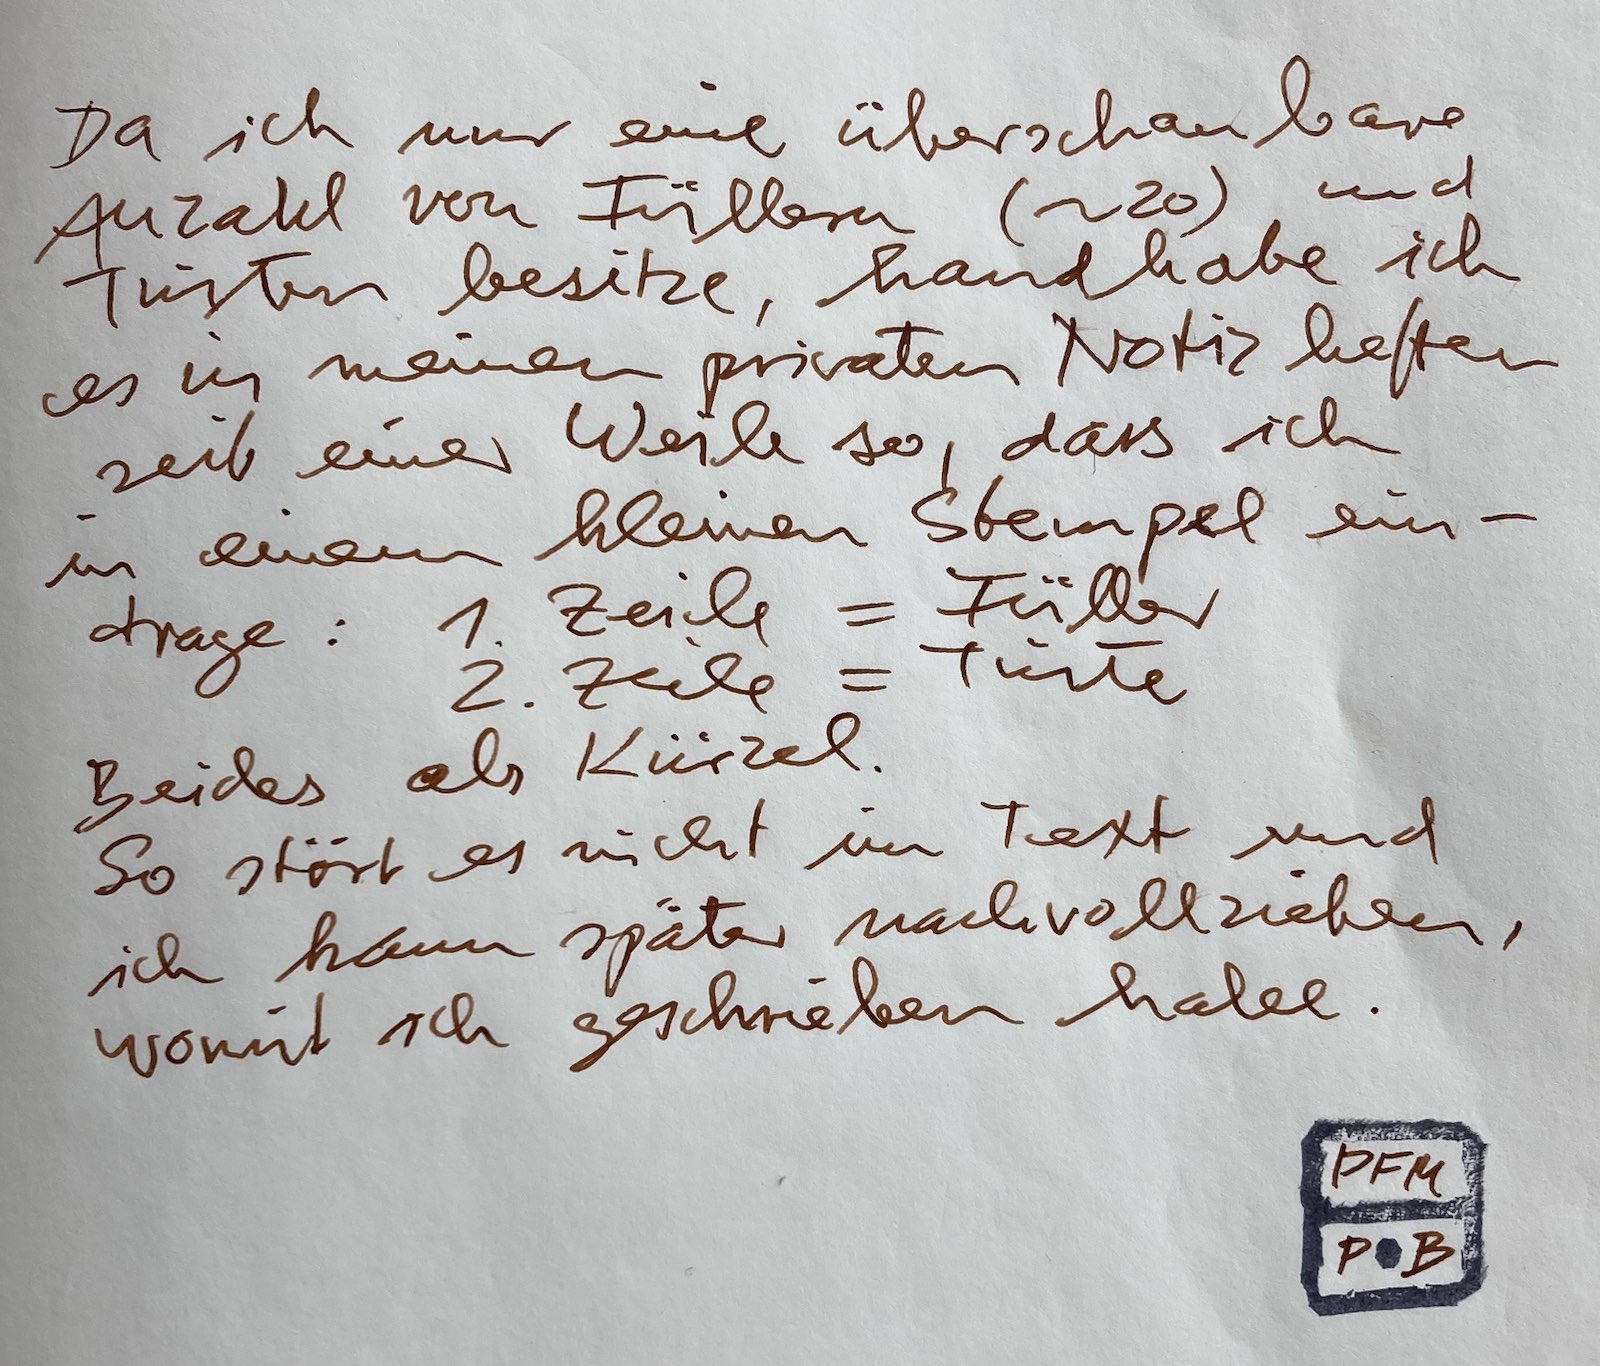 Da ich nur eine überschaubare
Anzahl von Füllern (~20) und
Tinten besitze, handhabe ich
es in meinen privaten Notizheften
seit einer Weile so, dass ich
in einem kleinen Stempel ein-
trage: 1. Zeile = Füller
2. Zeile = Tinte
Beides als Kürzel.
So stört es nicht im Text und
ich kann später nachvollziehen,
womit ich geschrieben habe.
PFM
P•B